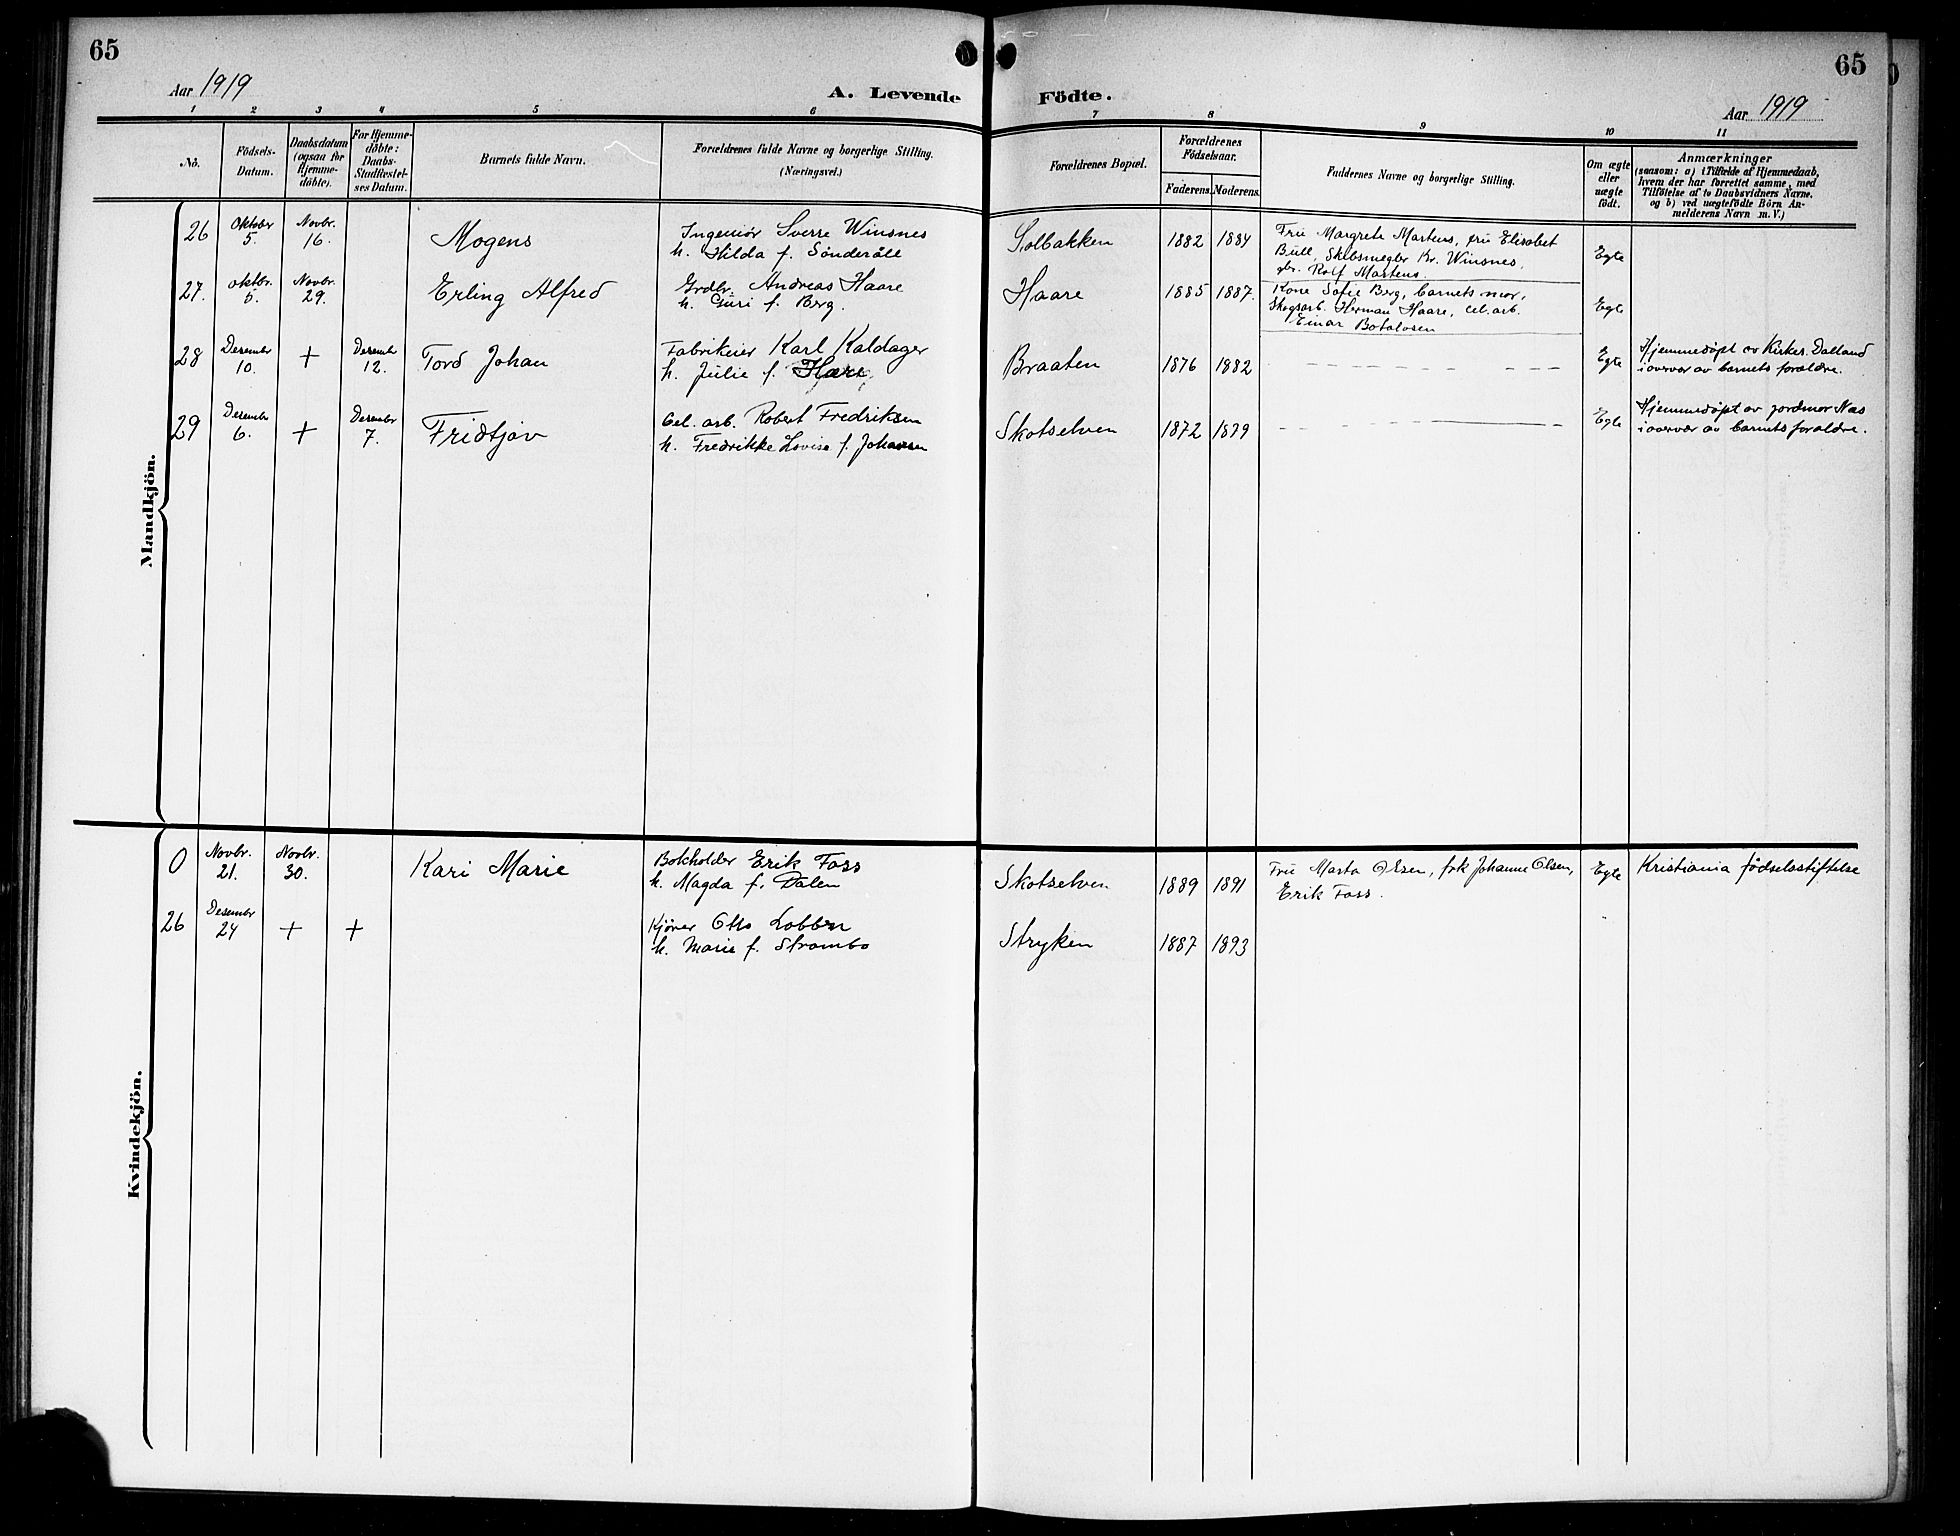 65
65
Aar 1919
A. Levende Födte.
Aar 1919
1 2 3 4 5 6 7 8 9 10 11
No.
Födsels-
Datum.
Daabsdatum
(ogsaa for
Hjemme-
döbte).
For Hjemme-
döbte:
Daabs-
Stadfæstel-
ses Datum.
Barnets fulde Navn.
Forældrenes fulde Navne og borgerlige Stilling.
(Næringsvei.)
Forældrenes Bopæl.
Forældrenes
Födselsaar.
Faderens. Moderens.
Faddernes Navne og borgerlige Stilling.
Om ægte
eller
uægte
födt.
Anmærkninger
(saasom: a) i Tilfælde af Hjemmedaab,
hvem der har forrettet samme, med
Tilföielse af to Daabsvidners Navne.
og b) ved uægtefödte Börn An-
melderens Navn m. V.)
Mandkjön.
26
Oktober
5.
Novbr.
16.
Mogens
Ingeniør Sverre Winsnes
h. Hilda f. Sønderåll
Solbakken
1882 1884
Fru Margrete Martens, fru Elisabet
Bull, Skibsmegler Kr. Winsnes,
gbr. Rolf Martens.
Egte
27.
Oktbr.
5.
Novbr.
29.
Erling Alfred
Grdbr. Andreas Haare
h. Guri f. Berg.
Haare
1885 1887.
Kone Sofie Berg, barnets mor,
Skogsarb. Herman Haare, cel. arb.
Einar Botolvsen
Egte
28
Desembr
10.
+
Desembr
12.
Tord Johan
Fabrikeier Karl Kaldager
h. Julie f. Hære
Braaten
1876 1882
Egte
Hjemmedøpt av Kirkes. Dalland
i overvær av barnets forældre.
29
Desembr
6.
+
Desembr
7.
Fridtjov
Cel. arb. Robert Fredriksen
h. Fredrikke Lovise f. Johansen
Skotselven
1872 1879
Egte
Hjemmedøpt av jordmor Næs
i overvær av barnets forældre.
Kvindekjön.
0
Novbr.
21.
Novbr.
30.
Kari Marie
Bokholder Erik Foss
h. Magda f. Dalen
Skotselven
1889 1891
Fru Marta Olsen, frk Johanne Olsen,
Erik Foss.
Egte
Kristiania fødselsstiftelse
26
Desembr
24
+
+
Kjører Otto Lobben
h. Marie f. Strømbo
Stryken
1887 1893